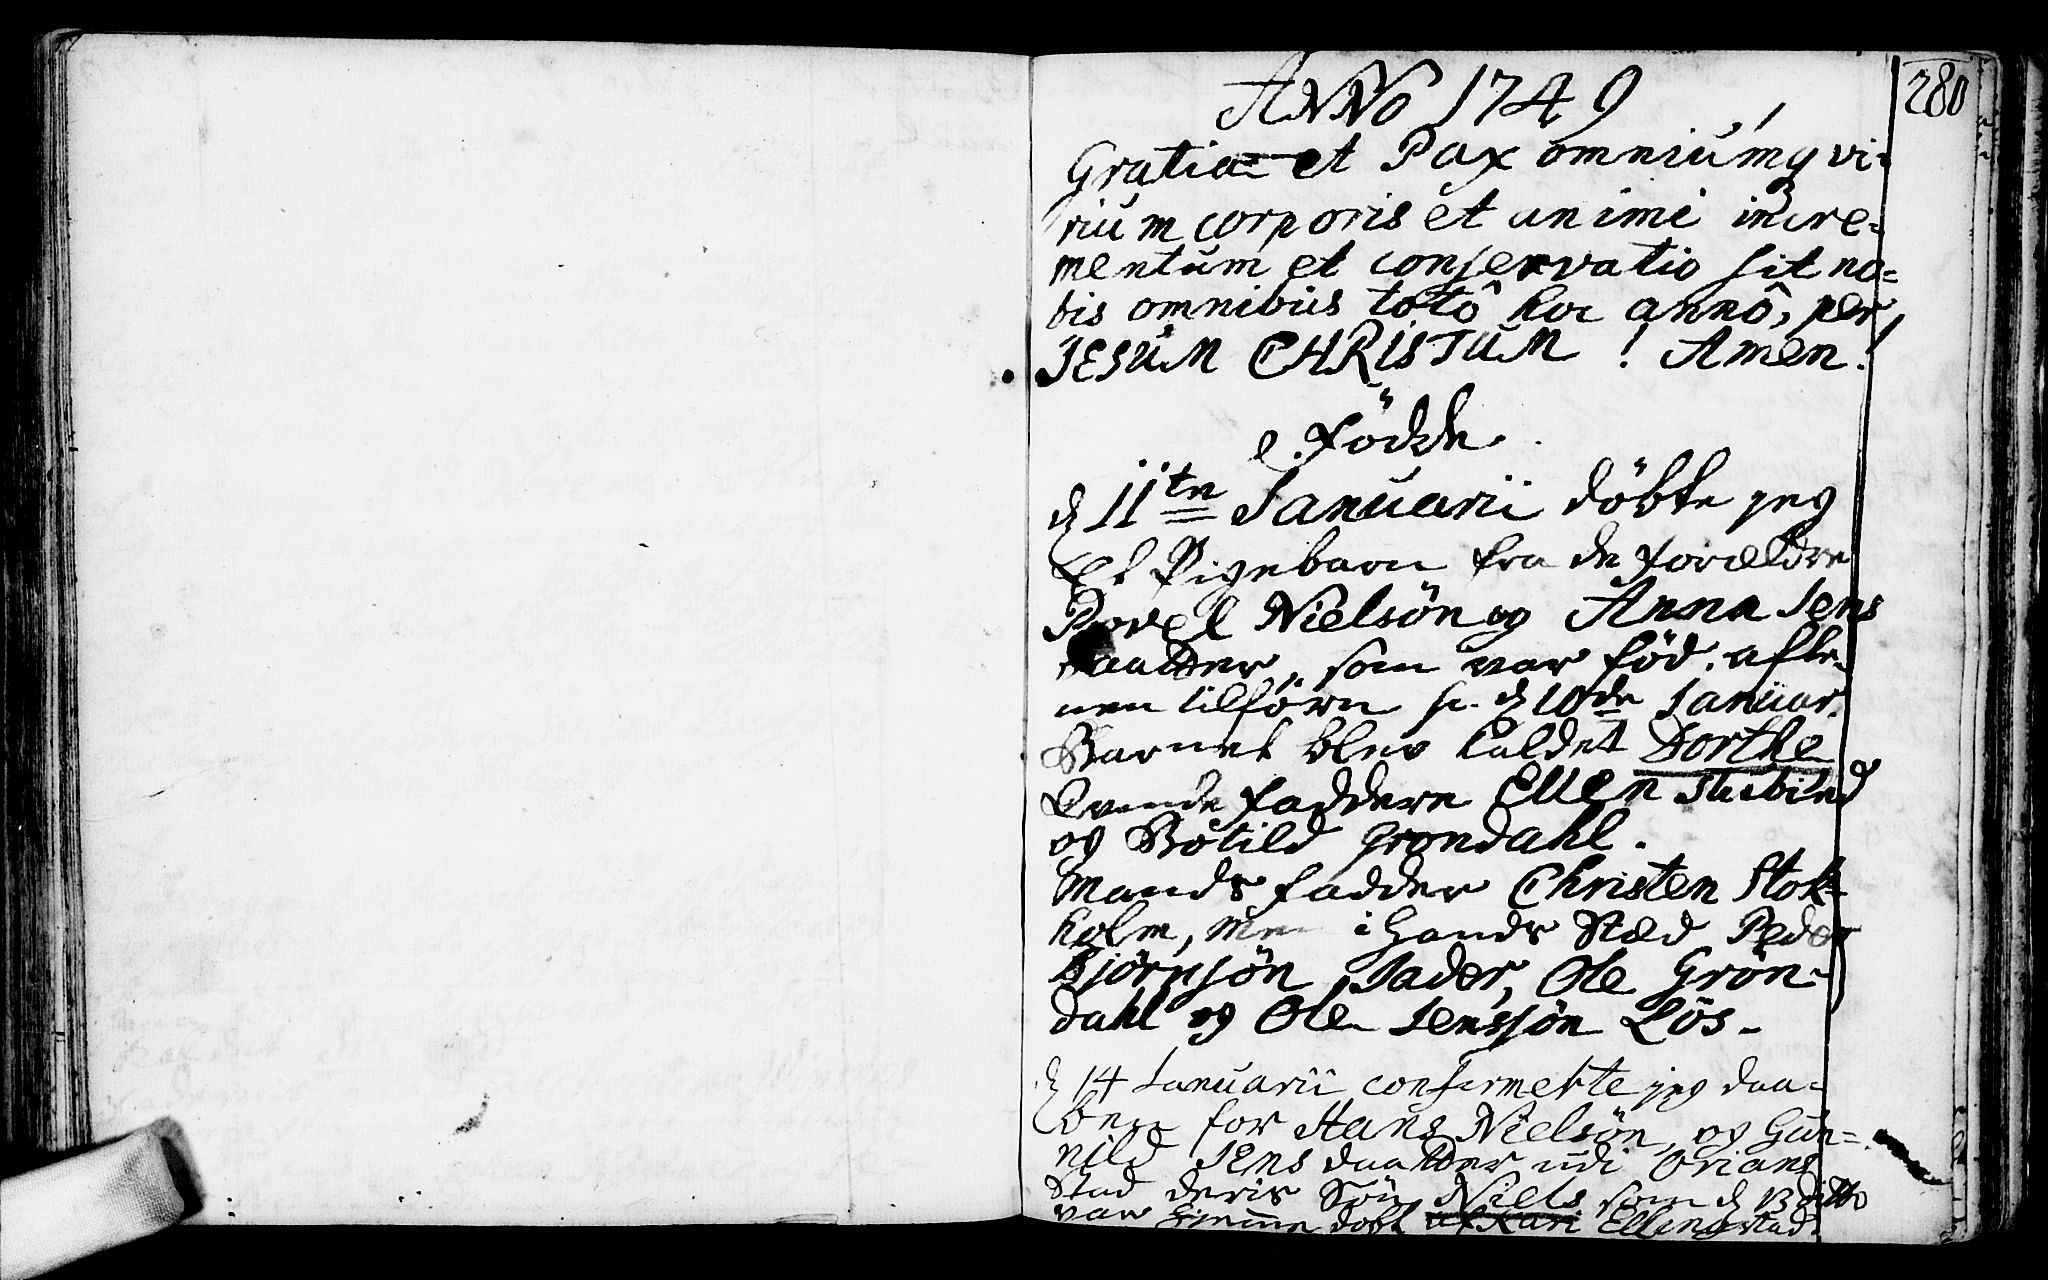 280
ANNO 1749
Gratia et Pax omniumqvi-
rium corporis et animi incre-
mentum et conservatio sit no-
bis omnibus totô hoc annô, per
JESUM CHRISTUM! Amen!
Födde
d 11te Januarii döbte jeg
Et Pigebarn fra de forældre
Povel Nielsön og Anna Jens
daatter, som var föd afte-
nen tilförn d 10de Januar.
Barnet blev kaldet Dorthe
Qvinde faddere Ellen Stubind
og Botild Grondahl.
Mands fadder Christen Stok-
holm, Men i Hands Stæd Peder
Björnsön Fader, Ole Grön-
dahl og Ole Jenssön Lös-
d 14 Januarii confirmerte jeg daa-
ben for Hans Nielsön, og Gun-
nild Jens daatter udi
Stad deris Sön Niels som d 13 ditto
var hjemme döbt af Kari Ellingstad.